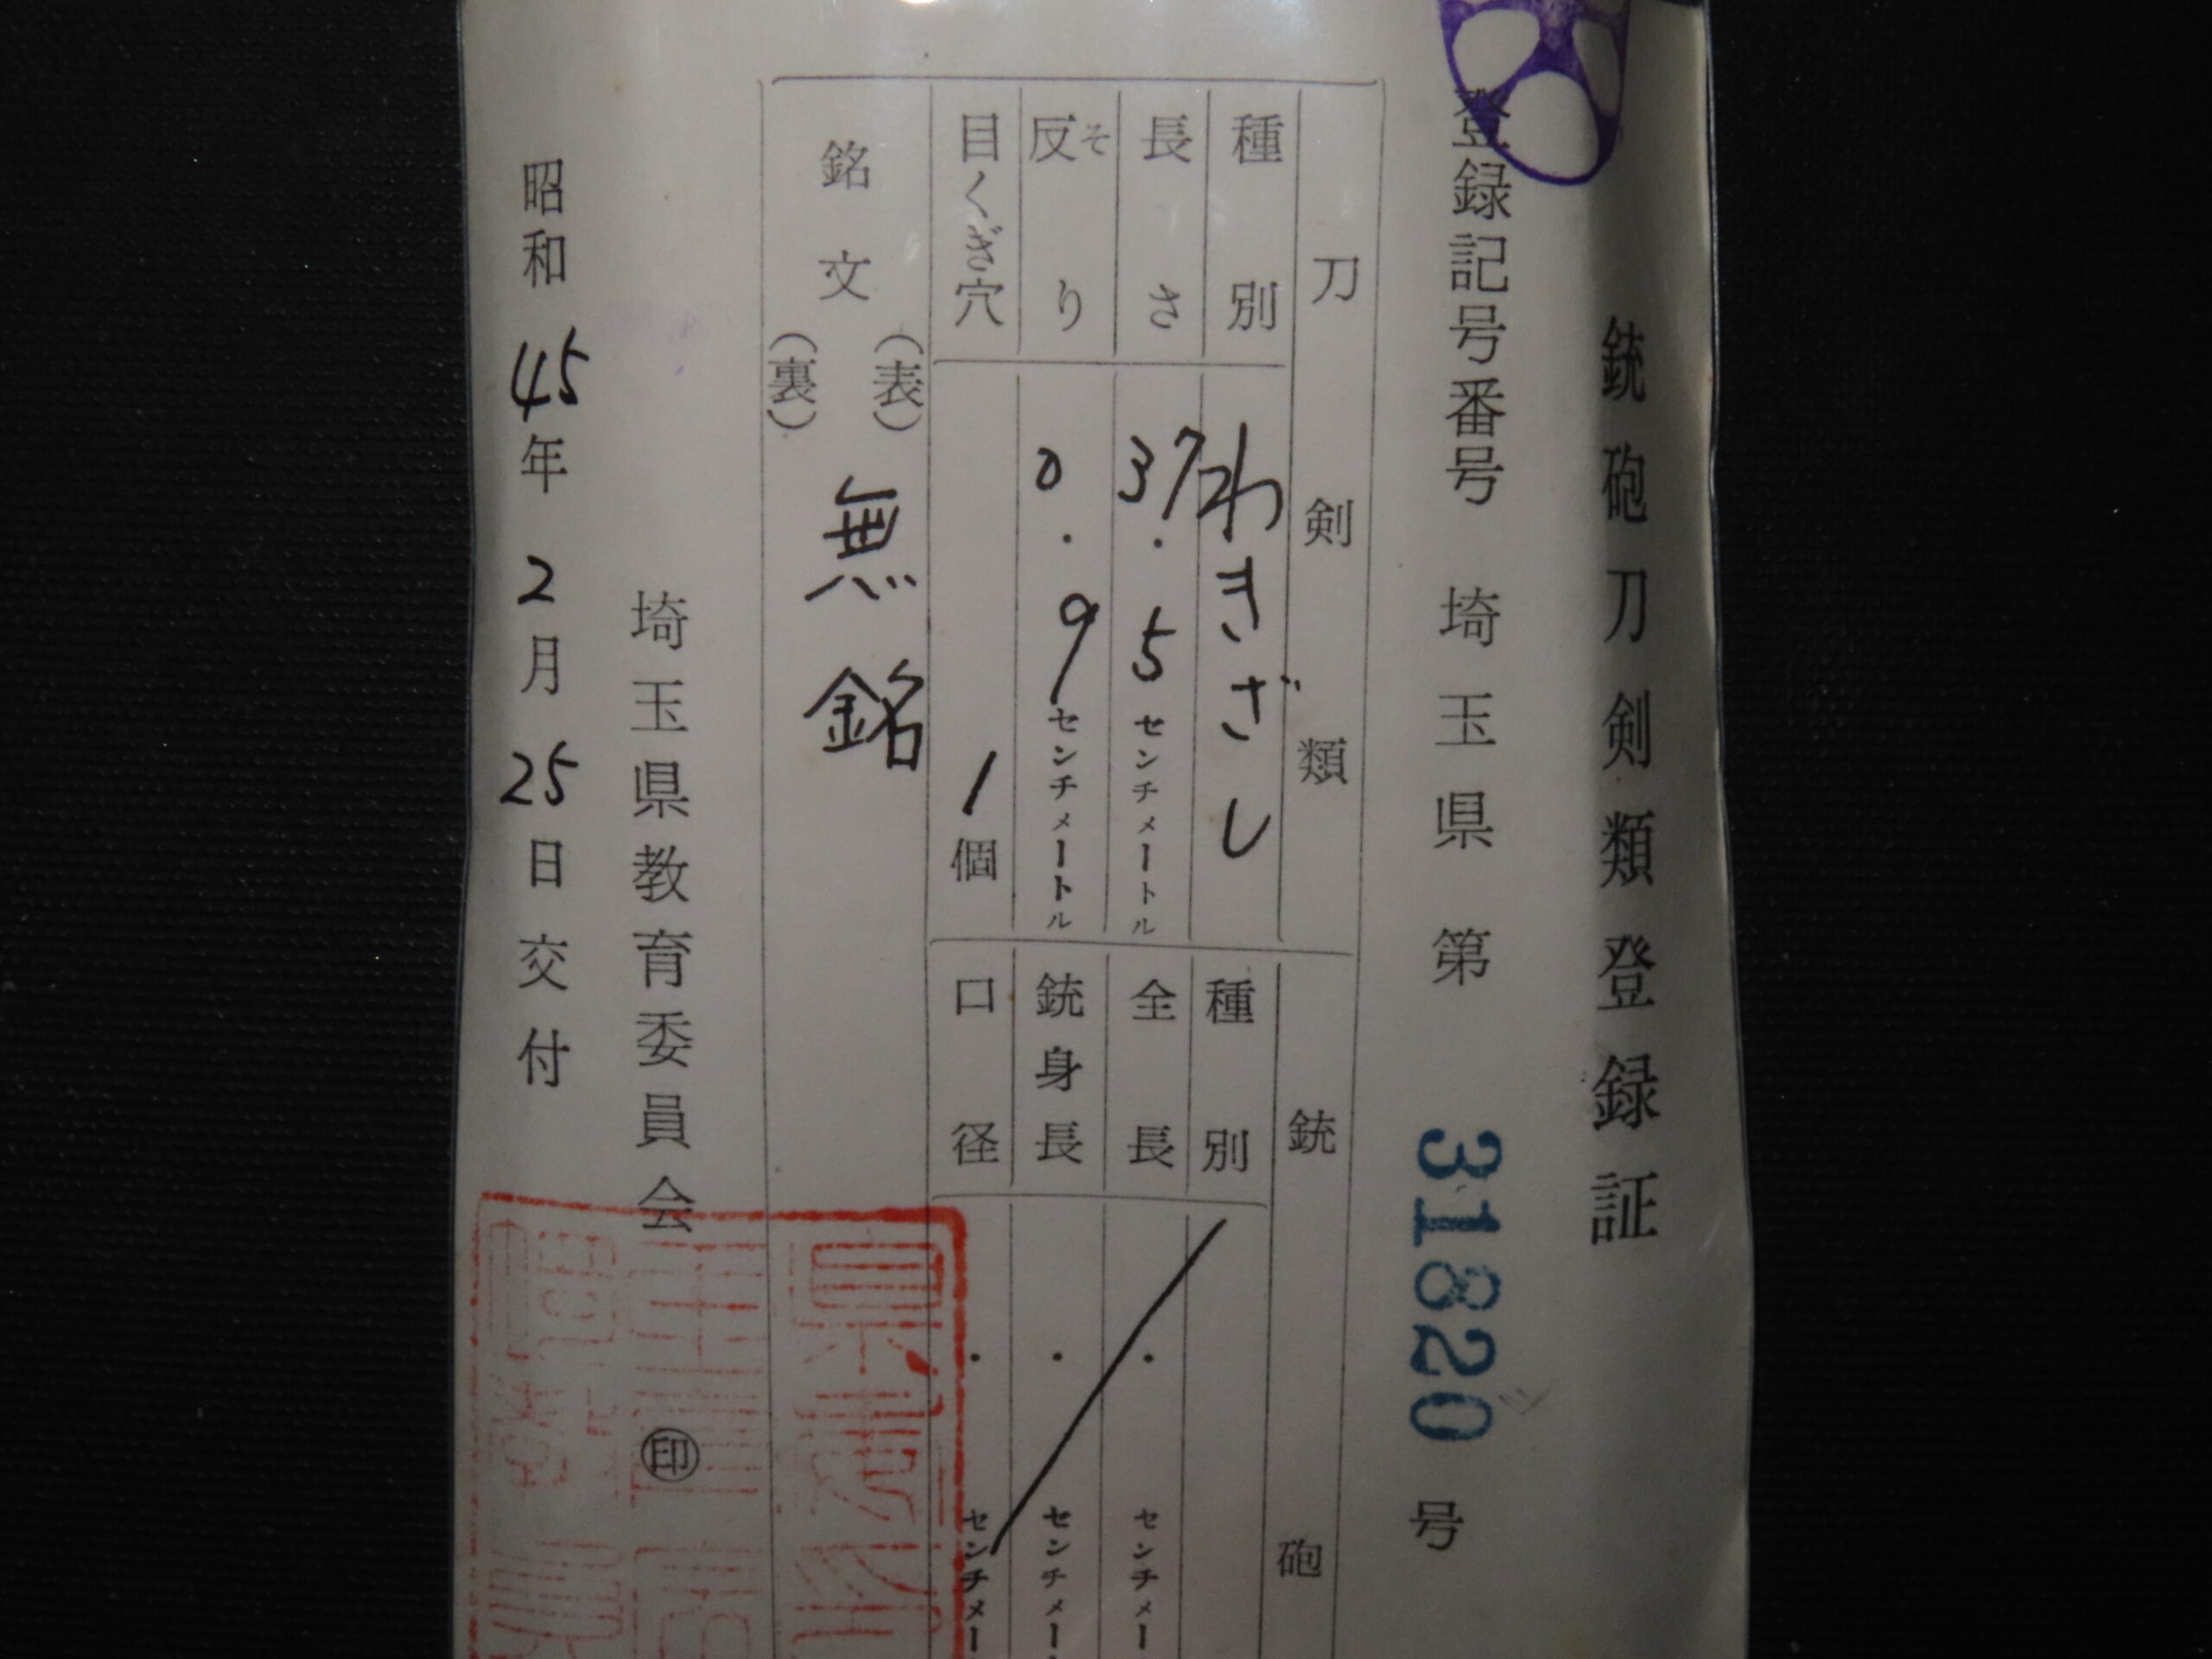 銃砲刀剣類登録証
登録記号番号 埼玉県 第 31820 号
刀剣類
種別 わきざし
長さ 37.5 センチメートル
反り そ 0.9 センチメートル
目くぎ穴 1 個
銘文 (表) 無銘
(裏)
銃砲
種別
全長 . センチメー
銃身長 . センチメー
口径 . センチメー
埼玉県教育委員会 ㊞
昭和 45 年 2 月 25 日 交付